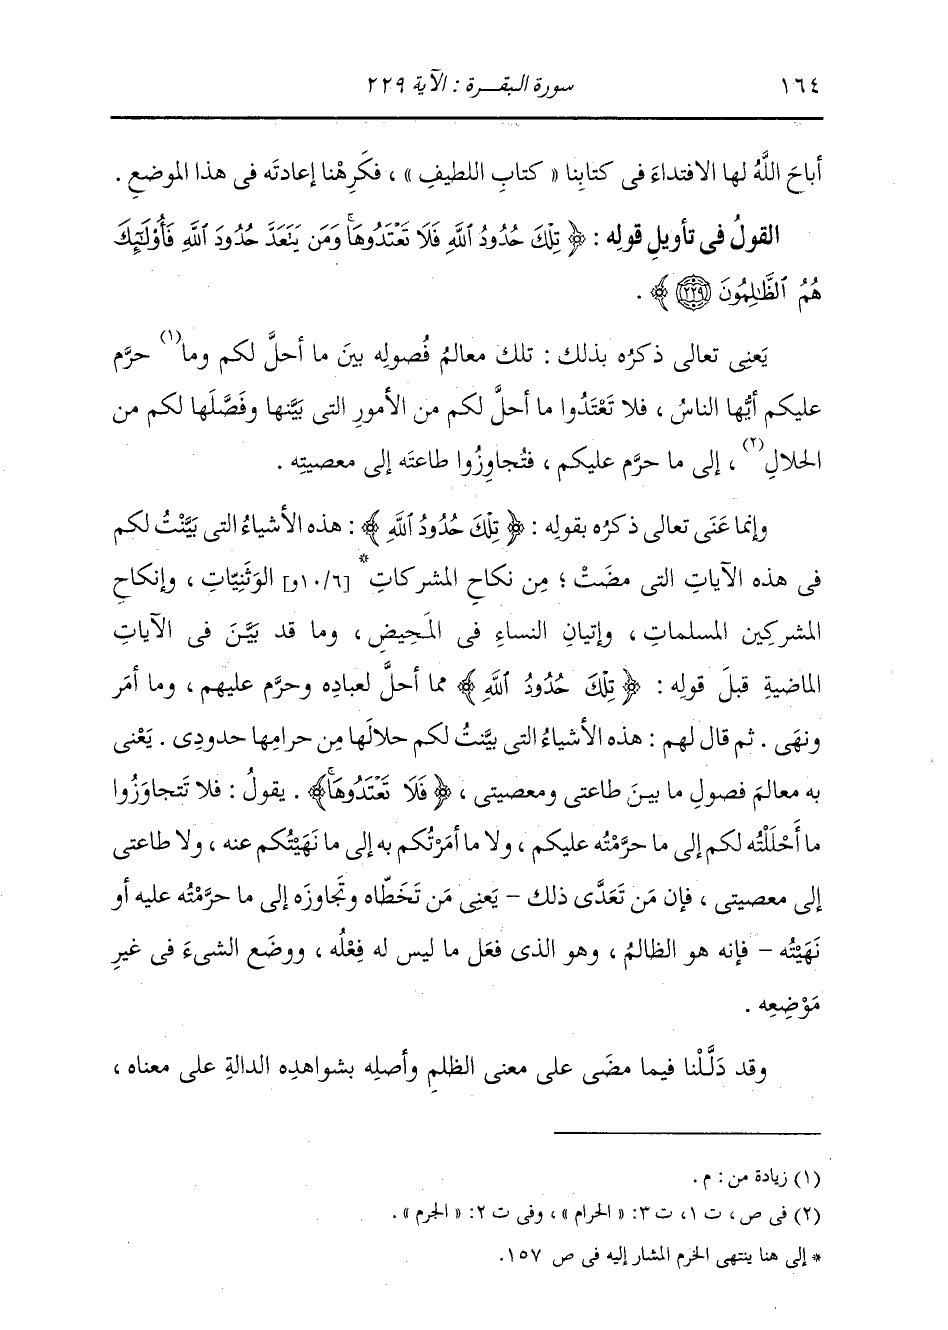 ١٦٤ سورة البقـــرة : الآية ٢٢٩
أباحَ اللَّهُ لها الافتداءَ فى كتابِنا « كتابِ اللطيفِ » ، فكَرِهْنا إعادتَه فى هذا الموضعِ .
القولُ فى تأويلِ قولِه : ﴿ تِلْكَ حُدُودُ ٱللَّهِ فَلَا تَعْتَدُوهَاۚ وَمَن يَتَعَدَّ حُدُودَ ٱللَّهِ فَأُوْلَٰٓئِكَ
هُمُ ٱلظَّٰلِمُونَ ٢٢٩ ﴾ .
يَعنِى تعالى ذكرُه بذلك : تلك معالمُ فُصولِه بينَ ما أحلَّ لكم وما(١) حرَّم
عليكم أيُّها الناسُ ، فلا تَعْتَدُوا ما أحلَّ لكم من الأمورِ التى بَيَّنها وفَصَّلَها لكم من
الحلالِ(٢) ، إلى ما حرَّم عليكم ، فتُجاوِزُوا طاعتَه إلى معصيتِه .
وإنما عَنَى تعالى ذكرُه بقولِه : ﴿ تِلْكَ حُدُودُ ٱللَّهِ ﴾ : هذه الأشياءُ التى بَيَّنْتُ لكم
فى هذه الآياتِ التى مضَتْ ؛ مِن نكاحِ المشركاتِ* [١٠/٦و] الوَثَنِيّاتِ ، وإنكاحِ
المشركِين المسلماتِ ، وإتيانِ النساءِ فى المَحيضِ ، وما قد بَيَّنَ فى الآياتِ
الماضيةِ قبلَ قولِه : ﴿ تِلْكَ حُدُودُ ٱللَّهِ ﴾ مما أحلَّ لعبادِه وحرَّم عليهم ، وما أمَر
ونهَى . ثم قال لهم : هذه الأشياءُ التى بيَّنتُ لكم حلالَها مِن حرامِها حدودِى . يَعْنى
به معالمَ فصولِ ما بينَ طاعتى ومعصيتى ، ﴿ فَلَا تَعْتَدُوهَاۚ ﴾ . يقولُ : فلا تَتجاوَزُوا
ما أَحْلَلْتُه لكم إلى ما حرَّمْتُه عليكم ، ولا ما أمَرْتُكم به إلى ما نَهَيْتُكم عنه ، ولا طاعتى
إلى معصيتى ، فإن مَن تَعَدَّى ذلك – يَعنِى مَن تَخَطّاه وتَجاوزَه إلى ما حرَّمْتُه عليه أو
نَهَيْتُه – فإنه هو الظالمُ ، وهو الذى فعَل ما ليس له فِعْلُه ، ووضَع الشىءَ فى غيرِ
مَوْضِعِه .
وقد دَلَّلْنا فيما مضَى على معنى الظلمِ وأصلِه بشواهدِه الدالةِ على معناه ،
(١) زيادة من : م .
(٢) فى ص ، ت ١، ت ٣: « الحرام » ، وفى ت ٢: « الجرم » .
* إلى هنا ينتهى الخرم المشار إليه فى ص ١٥٧.